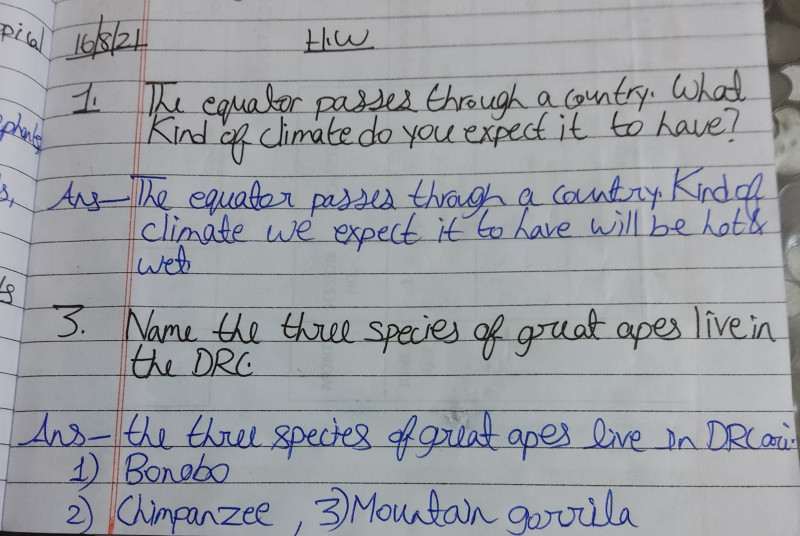 pical
16/8/21 H.W
1. The equator passes through a country. What
Kind of climate do you expect it to have?
phants
s,
Ans- The equator passes through a country. Kind of
climate we expect it to have will be hot &
wet
3. Name the three species of great apes live in
the DRC.
Ans- the three species of great apes live in DRC are.
1) Bonobo
2) Chimpanzee, 3) Mountain gorrila